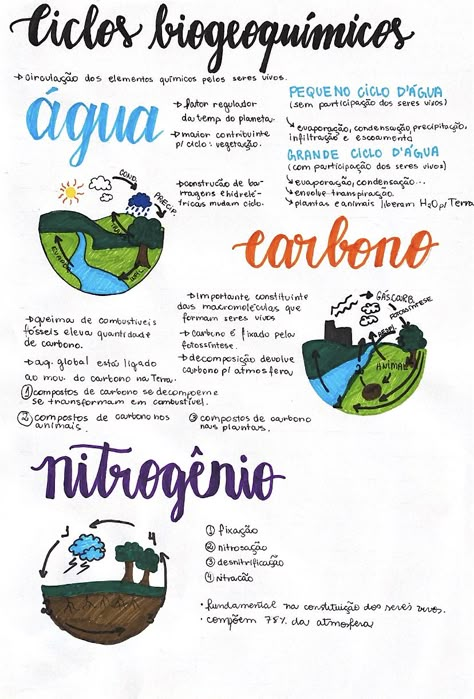 Ciclos biogeoquímicos
→ circulação dos elementos químicos pelos seres vivos.
água
→ fator regulador
da temp do planeta
→ maior contribuinte
p/ ciclo: vegetação.
→ construção de bar-
ragens e hidrelé-
tricas mudam ciclo.
PEQUENO CICLO D'ÁGUA
(sem participação dos seres vivos)
↳ evaporação, condensação, precipitação,
infiltração e escoamento
GRANDE CICLO D'ÁGUA
(com participação dos seres vivos)
↳ evaporação, condensação...
↳ envolve transpiração.
↳ plantas e animais liberam H2O p/ Terra
COND.
PRECIP.
EVAPOR.
INFIL.
carbono
→ queima de combustíveis
fósseis eleva quantidade
de carbono.
→ aq. global está ligado
ao mov. do carbono na Terra.
→ importante constituinte
das macromoléculas que
formam seres vivos
→ carbono é fixado pela
fotossíntese.
→ decomposição devolve
carbono p/ atmosfera
① compostos de carbono se decompoem e
se transformam em combustível.
② compostos de carbono nos
animais.
③ compostos de carbono
nas plantas.
GÁS CARB.
FOTOSSÍNTESE
RESPI.
ANIMAL
nitrogênio
① fixação
② nitrosação
③ desnitrificação
④ nitração
• fundamental na constituição dos seres vivos.
• compõem 78% da atmosfera